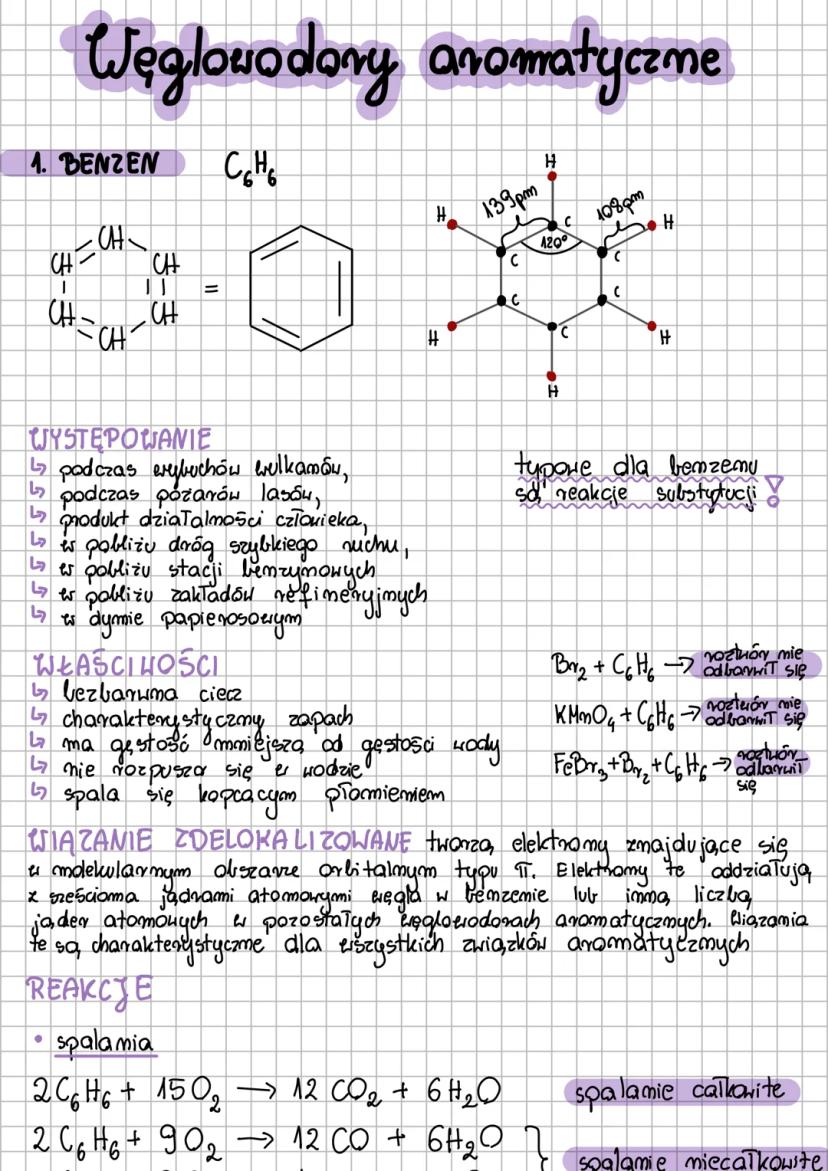 Węglowodory aromatyczne
1. BENZEN C₆H₆
CH
CH CH
CH CH
CH
=
H
H 139pm 108pm H
C
120°
C C
C C
H C H
H
WYSTĘPOWANIE
↳ podczas wybuchów wulkanów,
↳ podczas pożarów lasów,
↳ produkt działalności człowieka,
↳ w pobliżu dróg szybkiego ruchu,
↳ w pobliżu stacji benzynowych
↳ w pobliżu zakładów rafineryjnych
↳ w dymie papierosowym
typowe dla benzenu
są reakcje substytucji!
WŁAŚCIWOŚCI
↳ bezbarwna ciecz
↳ charakterystyczny zapach
↳ ma gęstość mniejszą od gęstości wody
↳ nie rozpusza się w wodzie
↳ spala się kopcącym płomieniem
Br₂ + C₆H₆ → roztwór nie
odbarwił się
KMnO₄ + C₆H₆ → roztwór nie
odbarwił się
FeBr₃ + Br₂ + C₆H₆ → roztwór
odbarwił
się
WIĄZANIE ZDELOKALIZOWANE tworzą elektrony znajdujące się
w molekularnym obszarze orbitalnym typu π. Elektrony te oddziałują
z sześcioma jądrami atomowymi węgla w benzenie lub inną liczbą
jąder atomowych w pozostałych węglowodorach aromatycznych. Wiązania
te są charakterystyczne dla wszystkich związków aromatycznych
REAKCJE
• spalania
2C₆H₆ + 15O₂ → 12 CO₂ + 6H₂O spalanie całkowite
2C₆H₆ + 9O₂ → 12 CO + 6H₂O
spalanie niecałkowite